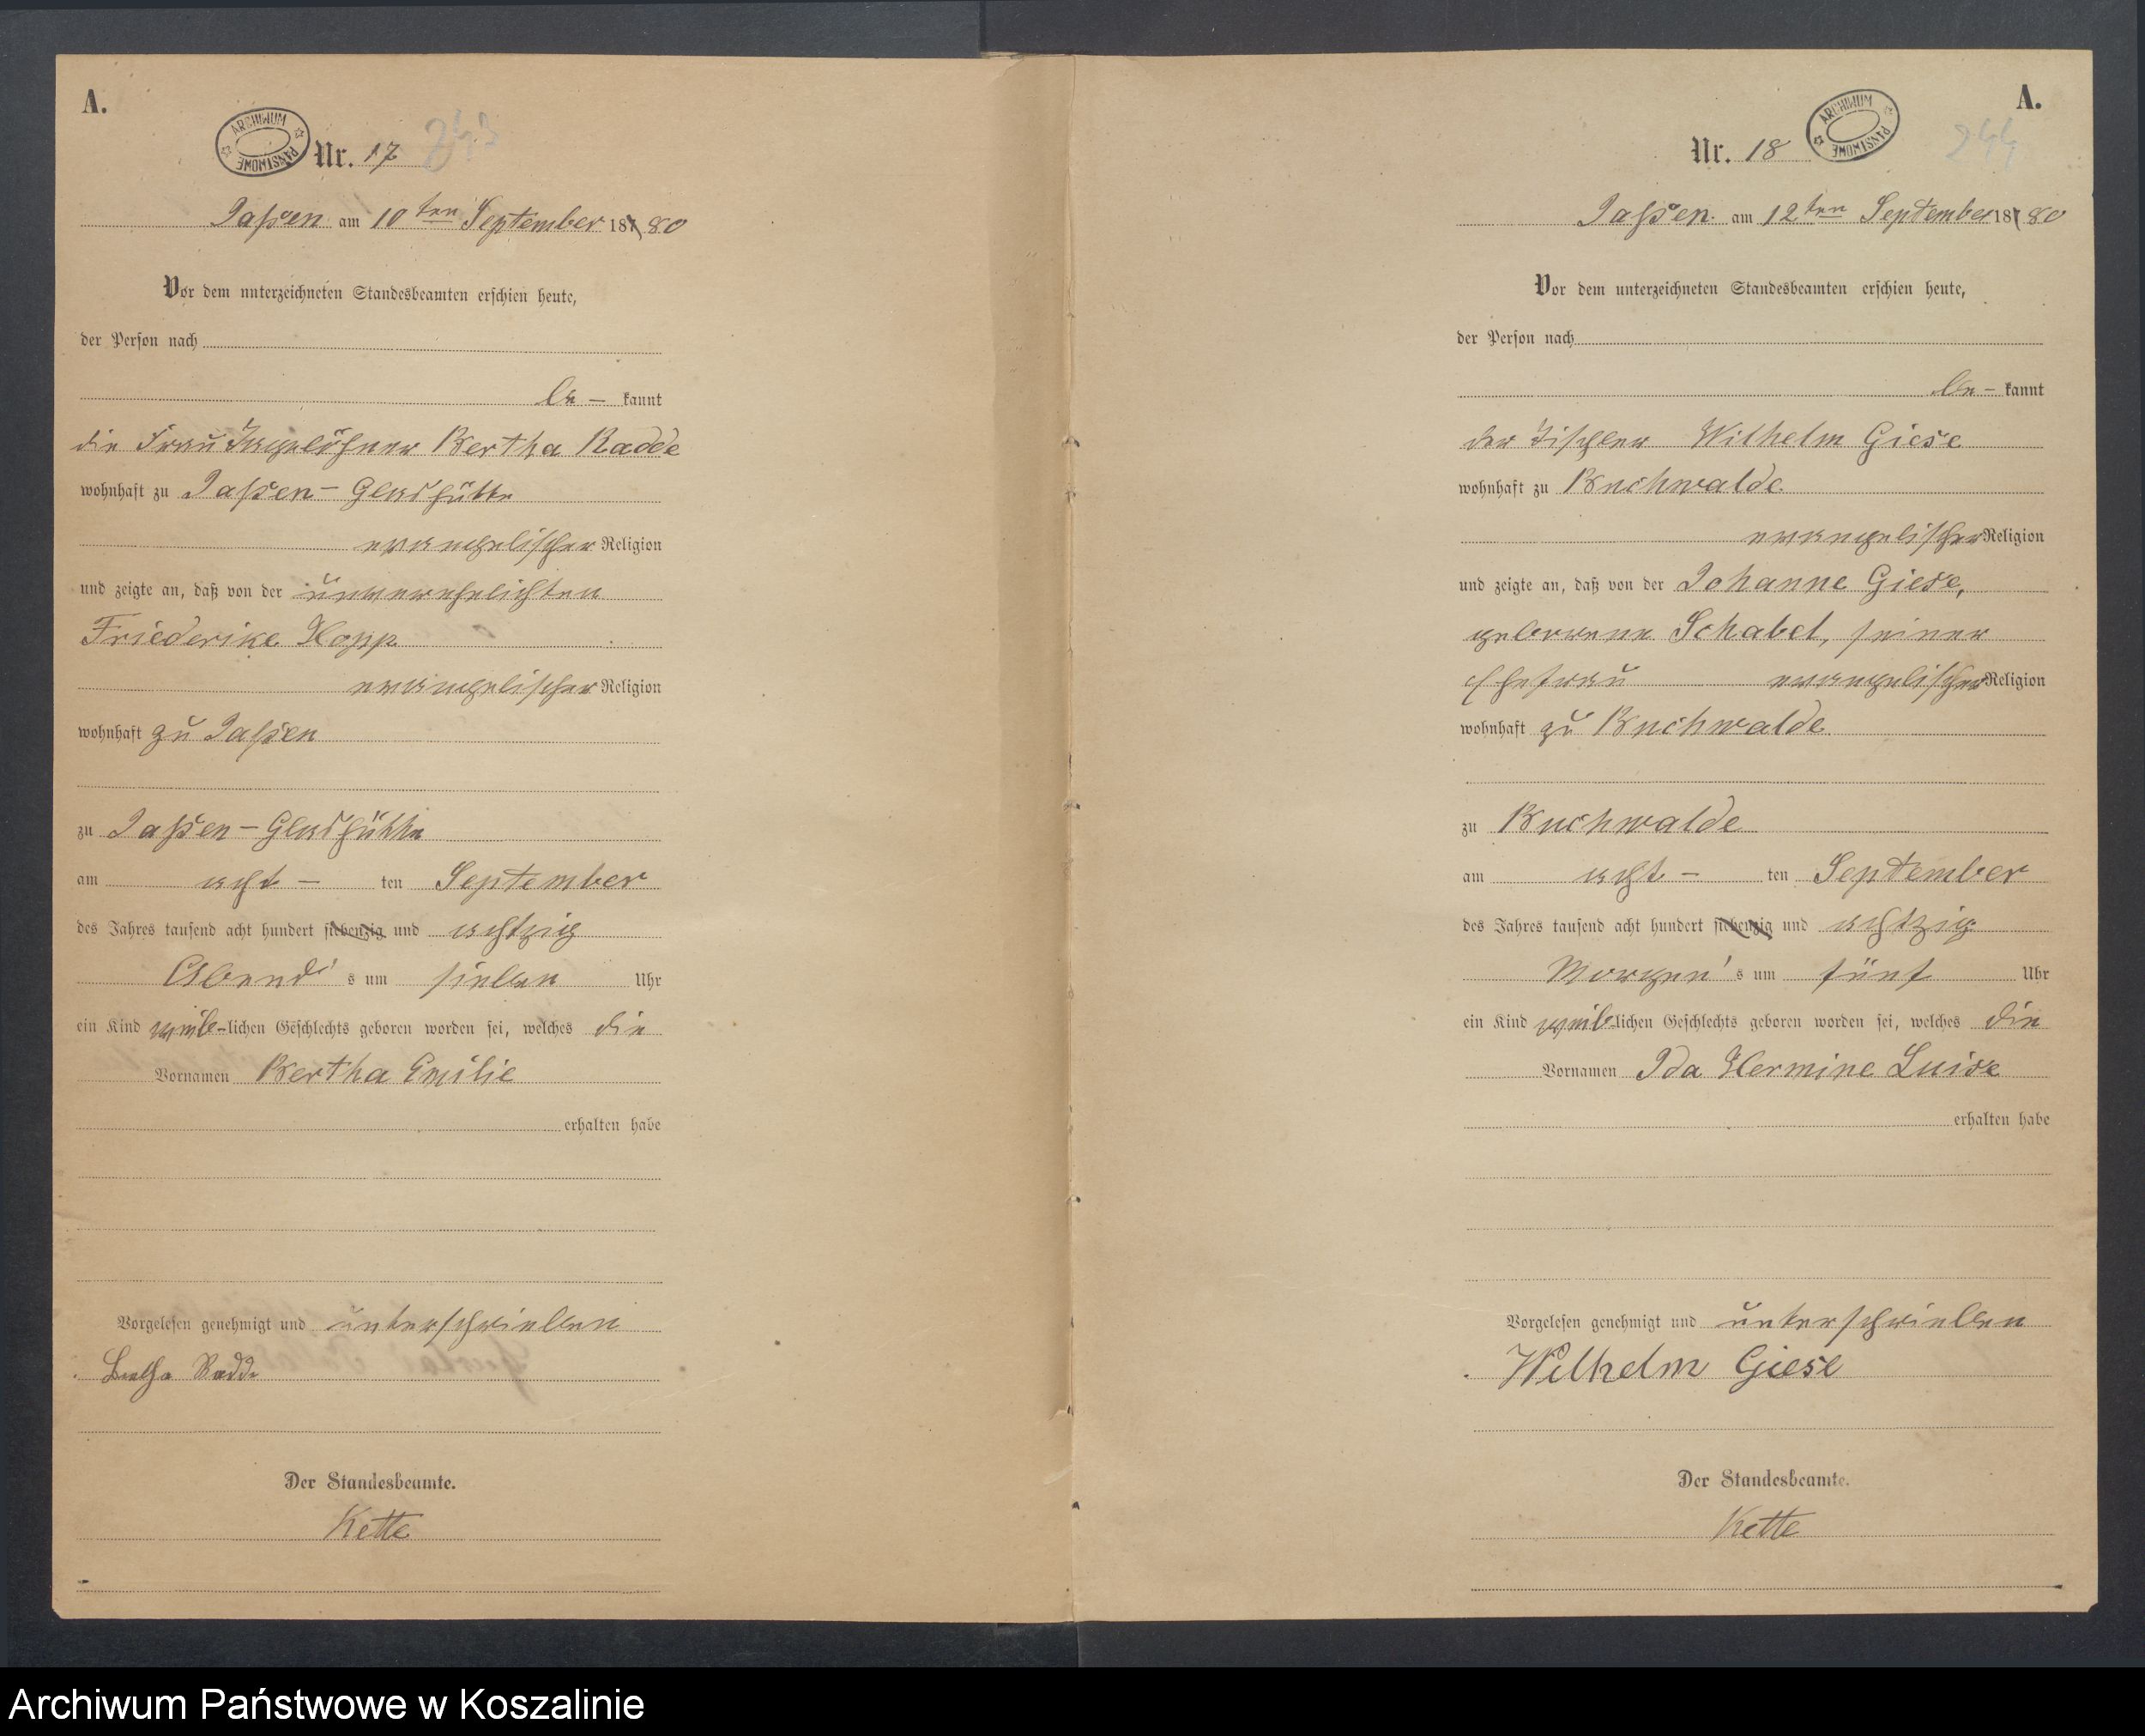 A.
ARCHIWUM PAŃSTWOWE
Nr. 17 243
Jaßen am 10ten September 187 80
Vor dem unterzeichneten Standesbeamten erschien heute,
der Person nach
be- kannt
die Frau Tagelöhner Bertha Radde
wohnhaft zu Jaßen-Glashütte
evangelischer Religion
und zeigte an, daß von der unverehelichten
Friederike Hopp
evangelischer Religion
wohnhaft zu Jaßen
zu Jaßen-Glashütte
am acht- ten September
des Jahres tausend acht hundert siebenzig und achtzig
Abend's um sieben Uhr
ein Kind weib-lichen Geschlechts geboren worden sei, welches die
Vornamen Bertha Emilie
erhalten habe
Vorgelesen genehmigt und unterschrieben
Bertha Radde
Der Standesbeamte.
Kette
A.
ARCHIWUM PAŃSTWOWE
Nr. 18 244
Jaßen am 12ten September 187 80
Vor dem unterzeichneten Standesbeamten erschien heute,
der Person nach
be- kannt
der Tischler Wilhelm Giese
wohnhaft zu Buchwalde
evangelischer Religion
und zeigte an, daß von der Johanne Giese,
geborene Schabel, seiner
Ehefrau evangelischer Religion
wohnhaft zu Buchwalde
zu Buchwalde
am acht- ten September
des Jahres tausend acht hundert siebenzig und achtzig
Morgen's um fünf Uhr
ein Kind weib-lichen Geschlechts geboren worden sei, welches die
Vornamen Ida Hermine Luise
erhalten habe
Vorgelesen genehmigt und unterschrieben
Wilhelm Giese
Der Standesbeamte.
Kette
Archiwum Państwowe w Koszalinie